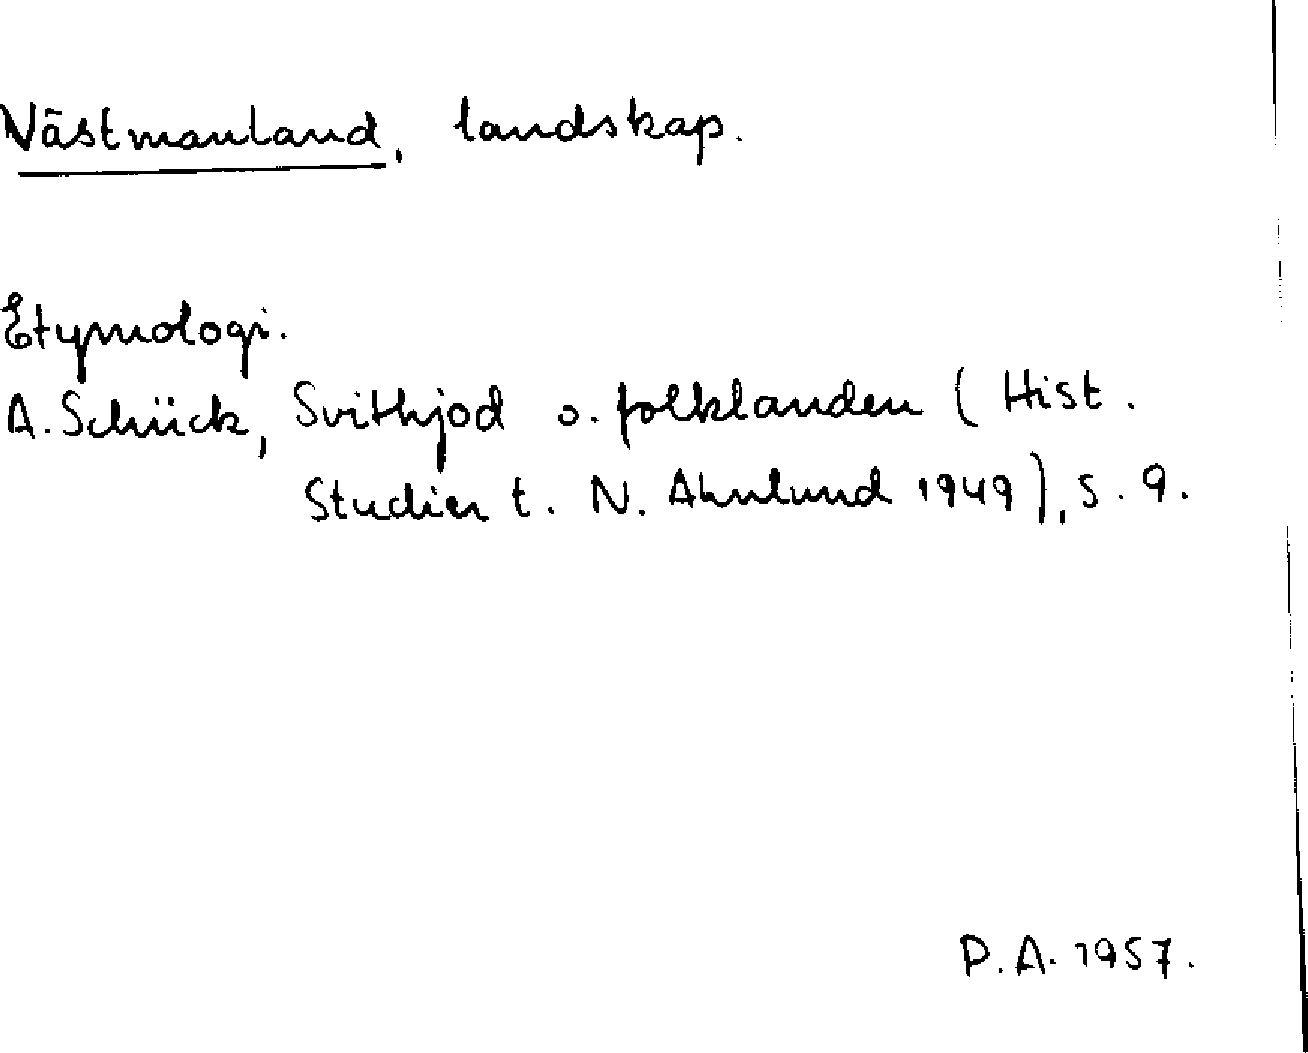 Västmanland, landskap.
Etymologi.
A. Schück, Svithjod o. folklanden (Hist.
Studier t. N. Ahnlund 1949), s. 9.
P.A. 1957.